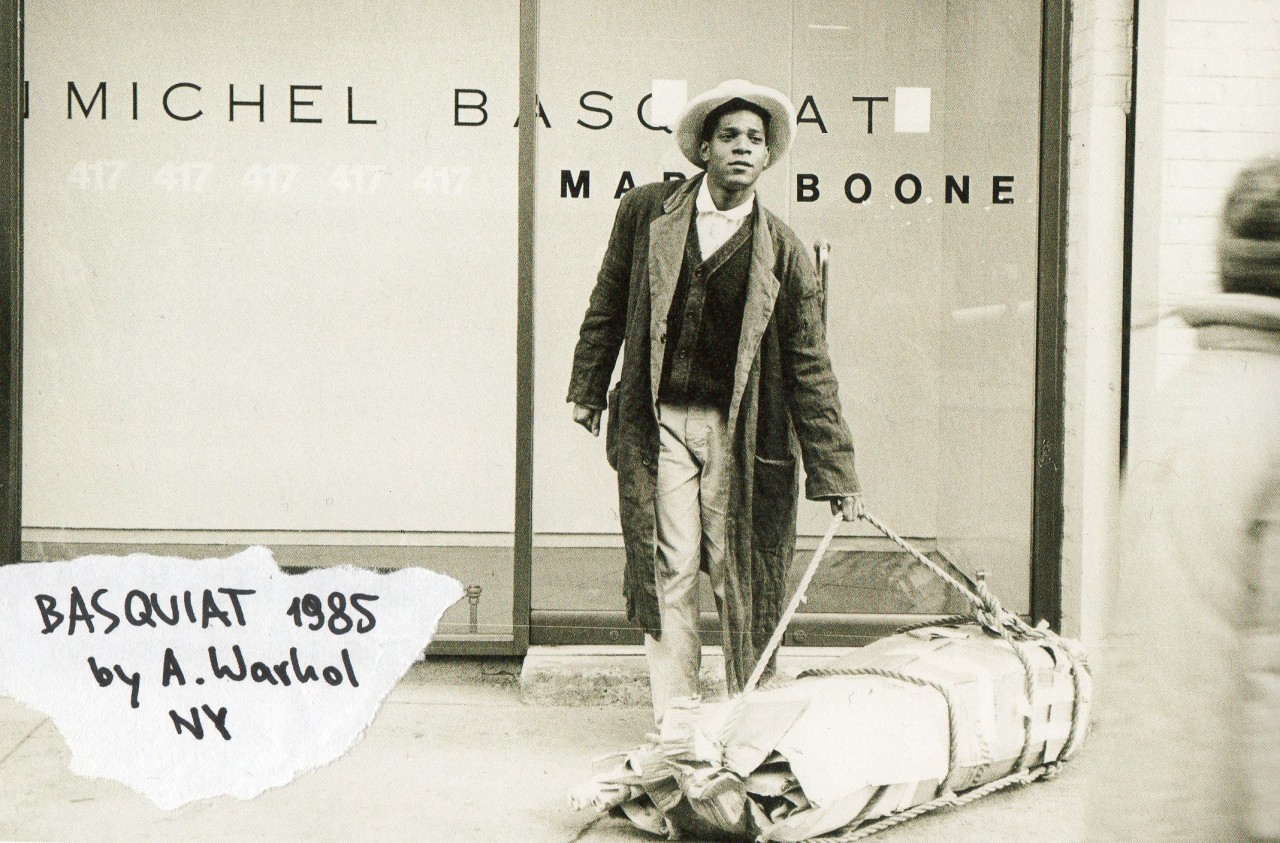 MICHEL BASQ AT
417 417 417 417 417
MAR BOONE
BASQUIAT 1985
by A. Warhol
NY